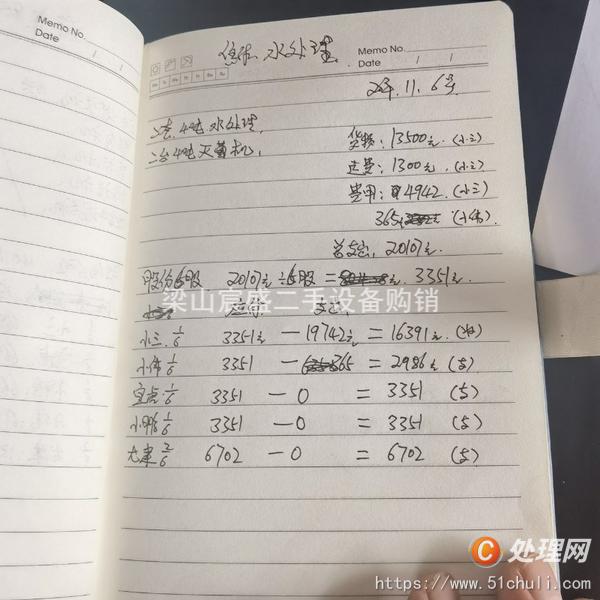 Memo No.
Date / /
水处理
Memo No.
Date / /
24年.11.6号
二套.4吨水处理,
二台4吨灭菌机,
货款:13500元.(小三)
运费:1300元.(小三)
费用:4942.(小三)
365元(小伟)
总支出,20107元
股份6股 20107元÷6股=元.3351元.
梁山宸盛二手设备购销
小三 1/6 3351元-19742元=16391元.(收)
小伟 1/6 3351-365=2986元(支)
宝虎 1/6 3351-0=3351(支)
小鹏 1/6 3351-0=3351(支)
大津 2/6 6702-0=6702(支)
C处理网
https://www.51chuli.com/